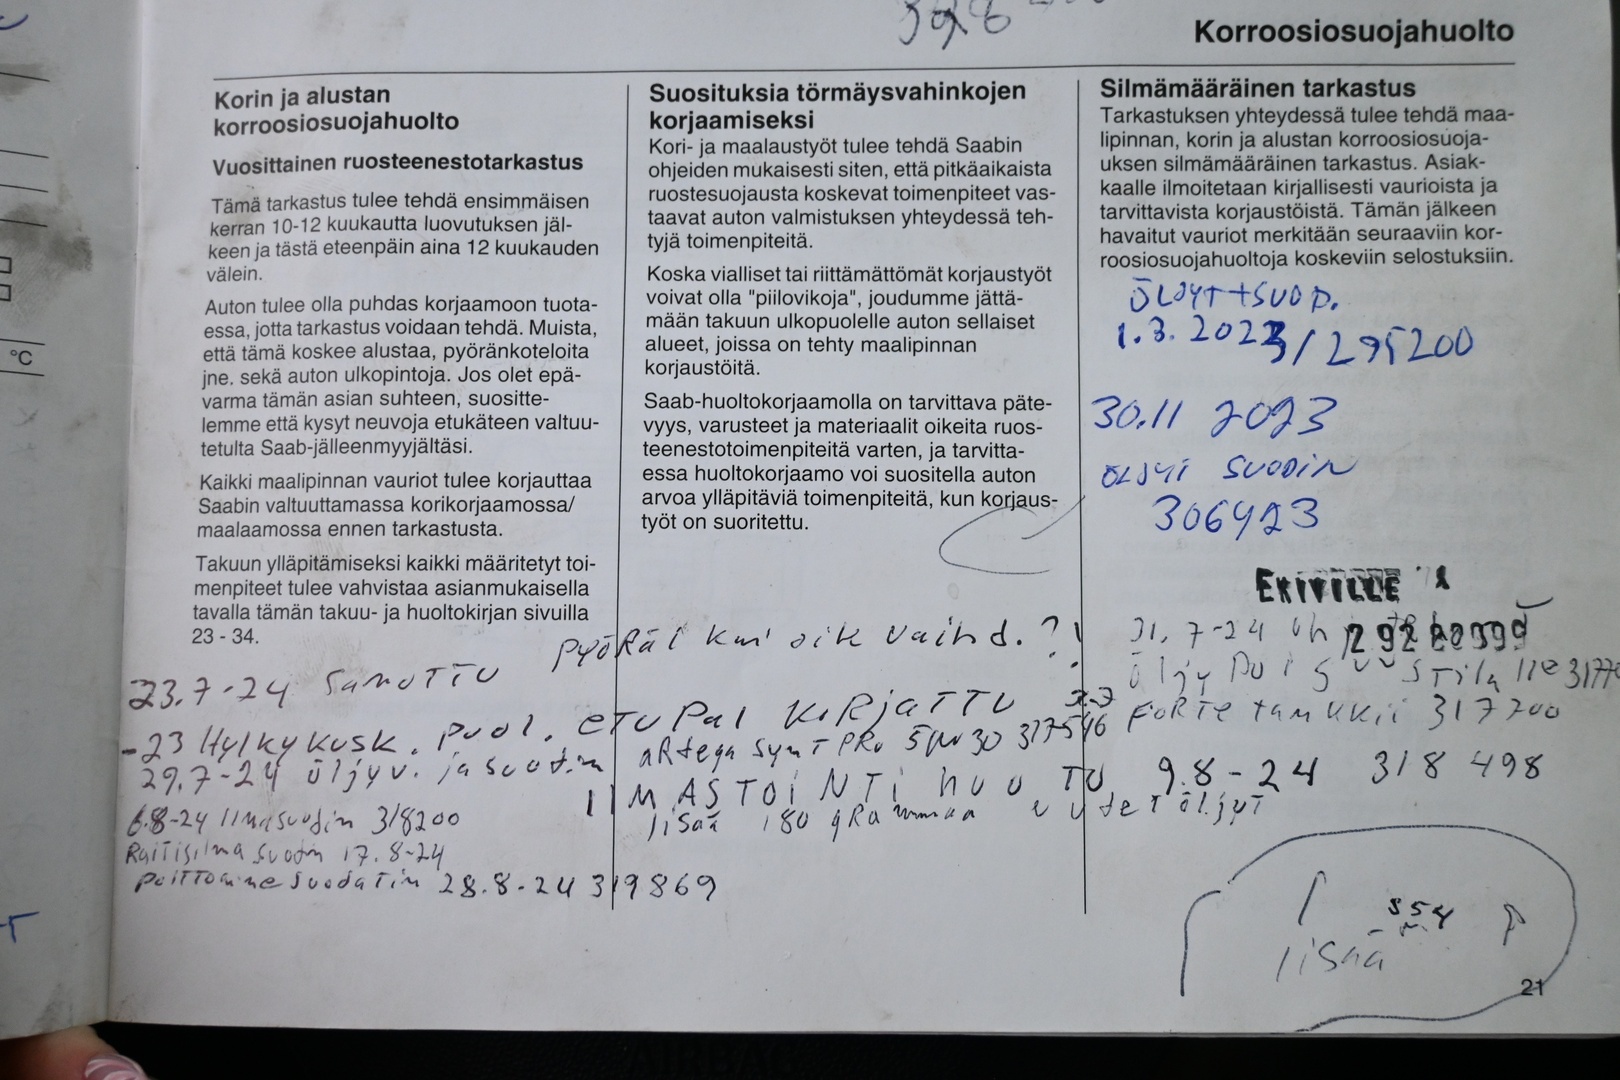 398
Korroosiosuojahuolto
Korin ja alustan
korroosiosuojahuolto
Vuosittainen ruosteenestotarkastus
Tämä tarkastus tulee tehdä ensimmäisen
kerran 10-12 kuukautta luovutuksen jäl-
keen ja tästä eteenpäin aina 12 kuukauden
välein.
Auton tulee olla puhdas korjaamoon tuota-
essa, jotta tarkastus voidaan tehdä. Muista,
että tämä koskee alustaa, pyöränkoteloita
jne. sekä auton ulkopintoja. Jos olet epä-
varma tämän asian suhteen, suositte-
lemme että kysyt neuvoja etukäteen valtuu-
tetulta Saab-jälleenmyyjältäsi.
Kaikki maalipinnan vauriot tulee korjauttaa
Saabin valtuuttamassa korikorjaamossa/
maalaamossa ennen tarkastusta.
Takuun ylläpitämiseksi kaikki määritetyt toi-
menpiteet tulee vahvistaa asianmukaisella
tavalla tämän takuu- ja huoltokirjan sivuilla
23 - 34.
Suosituksia törmäysvahinkojen
korjaamiseksi
Kori- ja maalaustyöt tulee tehdä Saabin
ohjeiden mukaisesti siten, että pitkäaikaista
ruostesuojausta koskevat toimenpiteet vas-
taavat auton valmistuksen yhteydessä teh-
tyjä toimenpiteitä.
Koska vialliset tai riittämättömät korjaustyöt
voivat olla "piilovikoja", joudumme jättä-
mään takuun ulkopuolelle auton sellaiset
alueet, joissa on tehty maalipinnan
korjaustöitä.
Saab-huoltokorjaamolla on tarvittava päte-
vyys, varusteet ja materiaalit oikeita ruos-
teenestotoimenpiteitä varten, ja tarvitta-
essa huoltokorjaamo voi suositella auton
arvoa ylläpitäviä toimenpiteitä, kun korjaus-
työt on suoritettu.
Silmämääräinen tarkastus
Tarkastuksen yhteydessä tulee tehdä maa-
lipinnan, korin ja alustan korroosiosuoja-
uksen silmämääräinen tarkastus. Asiak-
kaalle ilmoitetaan kirjallisesti vaurioista ja
tarvittavista korjaustöistä. Tämän jälkeen
havaitut vauriot merkitään seuraaviin kor-
roosiosuojahuoltoja koskeviin selostuksiin.
ÖLJYT+SUOD.
1.3.2023/295200
30.11 2023
ÖLJYT SUODIN
306423
31.7-24
öljy
FORTE tankkii 317700
Pyörät kun oik vaihd. ?!
23.7-24 SAMOTTU
-23 Hylkykusk. puol. etupal KIRJATTU
29.7-24 öljyv. ja suodin ARtega Synt PRo 5W30 317546
ILMASTOINTI HUOTU 9.8-24 318498
lisää 180 gRammaa uudet öljyt
6.8-24 Ilmasuodin 318200
Raitisilma suodin 17.8-24
polttoaine suodatin 28.8-24 319869
554
lisää
21
°C